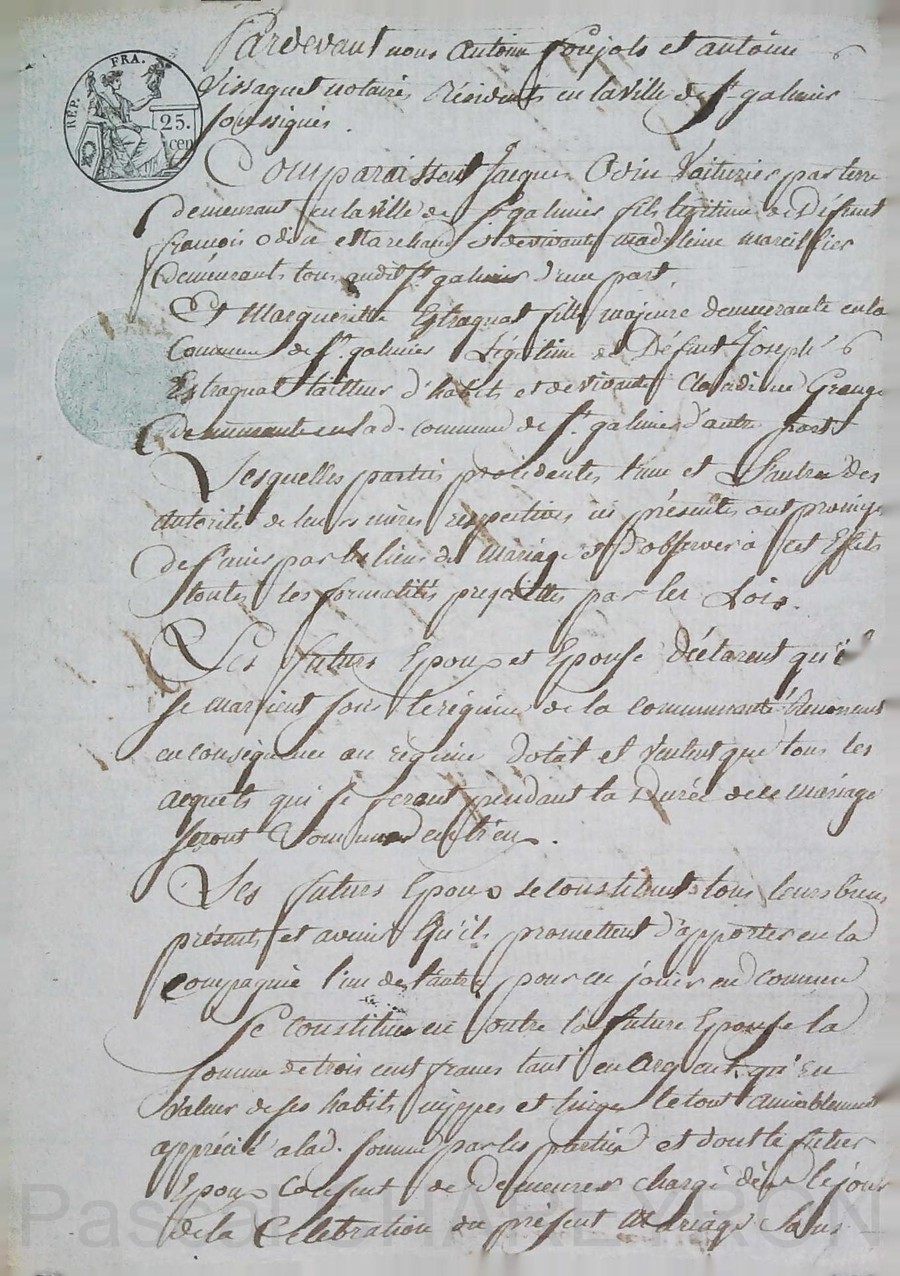 RÉP. FRA.
25.
cen
Pardevant nous Antoine Poujols et antoine
Vissaguet notaires Résidents en la ville de St galmier
soussignés.
Comparaissent Jacques Odin Voiturier par terre
demeurant en la ville de St galmier fils légitime de Défunt
françois odin Marchand et de vivante madeleine marcillier
demeurants tous audit St galmier d'une part
Et Margueritte Estragnat fille majeure demeurante en la
Commune de St galmier Légitime de Défunt Joseph
Estragnat tailleur d'habits et de vivante Claudine Grange
demeurante en lad. commune de St galmier d'autre part
Lesquelles parties procédantes l'une et l'autre des
autorité de leurs mères respectives ici présentes ont promis
de s'unir par les liens du Mariage et d'observer à cet Effet
toutes les formalités prescrittes par les Lois.
Les futurs Epoux et Epouse Déclarent qu'ils
se marient sous le régime de la communauté Renoncent
en conséquence au régime Dotal et Veulent que tous les
acquets qui se feront pendant la Durée de ce Mariage
seront Communs entr'eux.
Les futurs Epoux se constituent tous leurs biens
présents et avenir Qu'ils promettent d'apporter en la
compagnie l'un de l'autre pour en jouir en commun
Se Constitue en outre la future Epouse la
somme de trois cent francs tant en argent qu'en
Valeur de ses habits nippes et linge le tout amiablement
apprécié à lad. somme par les parties et dont le futur
Epoux Consent de Demeurer chargé dès le jour
de la Célébration du présent Mariage Sans
Pascal CHAREYRON